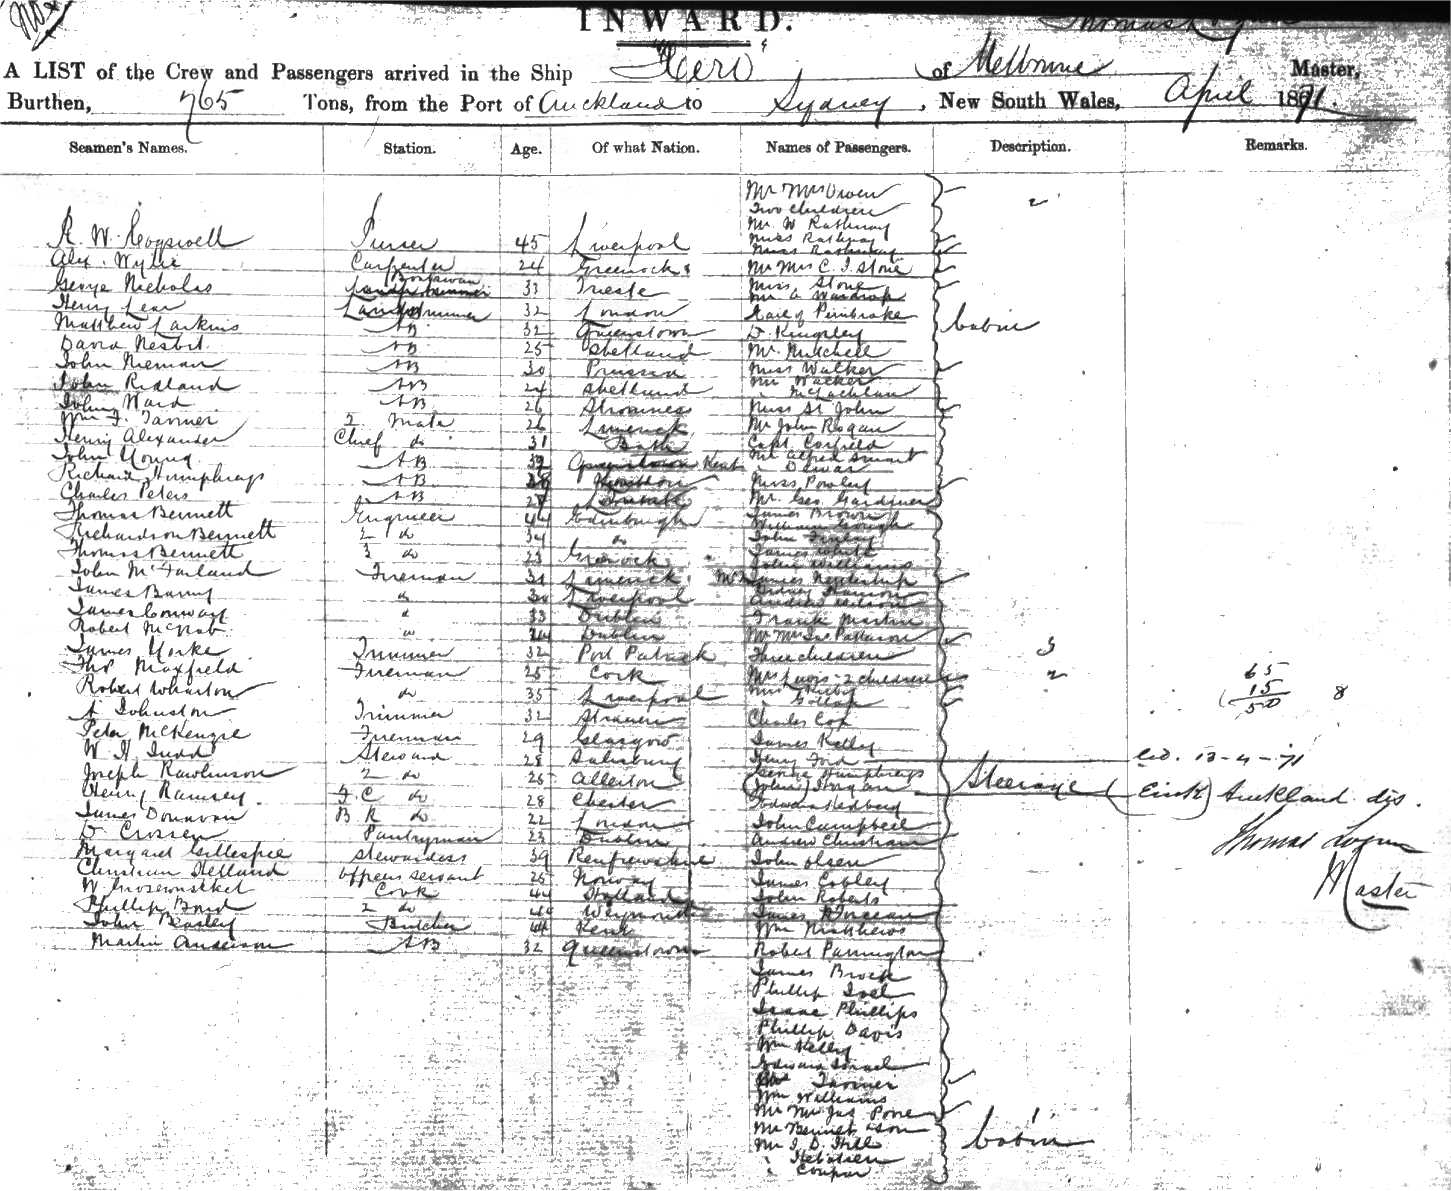 INWARD.
A LIST of the Crew and Passengers arrived in the Ship Hero of Melbourne Master,
Burthen, 765 Tons, from the Port of Auckland to Sydney, New South Wales, April 1871.
Seamen's Names. Station. Age. Of what Nation. Names of Passengers. Description. Remarks.
Mr Mrs Owen 2
Two children
Mr W Rathway
R. W. Cogswell Purser 45 Liverpool Miss Rathway
Alex. Wylie Carpenter 24 Greenock Mr Mrs C. J. Stone
George Nicholas Boatswain 33 Trieste Miss Stone
Mr G Wardrop
Henry Lear Lamptrimmer 32 London Earl of Pembroke
Matthew Larkins AB 32 Queenstown D. Kingsley cabin
David Nesbit AB 25 Shetland Mr Mitchell
John Nieman AB 30 Prussia Miss Walker
John Ridland AB 24 Shetland Mr Walker
McLachlan
John Ward AB 26 Stromness Miss St John
Wm F. Tanner 2 Mate 26 Limerick Mr John Rogan
Henry Alexander Chief do 31 Bath Capt Corfield
John Young AB Kent Mr Alfred Smart
Richard Humphreys AB Miss Powley
Charles Peters AB Mr Geo. Gardiner
Thomas Bennett Engineer 44 Edinburgh James Brown
William Gough
Richardson Bennett 2 do 34 do John Finlay
Thomas Bennett 3 do 23 Greenock James White
John Williams
John McFarland Fireman 31 Limerick James
James Barry do 30 Liverpool Sidney
Andrew Wilson
James Conway do 33 Dublin Frank Martin
Robert McNab do Dublin Mr Mrs Jas Patterson
James Yorke Trimmer 32 Port Patrick Three children 3
Thos Maxfield Fireman 25 Cork Mrs Lewis - 2 children 2 65
Robert Wharton do 35 Liverpool Miss 15 8
50
A Johnston Trimmer 32 Charles Cox
Peter McKenzie Fireman 29 Glasgow James Kelly
W. H. Judd Steward 28 Salisbury Henry Ford 13-4-71
Joseph Rawlinson 2 do 25 Allerton George Humphreys
Henry Ramsey F C do 28 Chester (John) Horgan Steerage Auckland dis.
Edward Hedberg
James Donavan B R do 22 London John Campbell
D Crossen Pantryman 23 Dublin Andrew Christian Thomas Logan
Margaret Gillespie Stewardess 39 Renfrewshire John Olsen Master
Christian Helland Officers servant 25 Norway James Cobley
W. Cook 44 Holland John Roberts
Phillip Bond 2 do Weymouth James
John Beasley Butcher 44 Kent Wm Matthews
Martin Anderson AB 32 Queenstown Robert Pannington
James Brock
Phillip Joel
Isaac Phillips
Phillip Davis
Wm Kelly
Edward Israel
Tanner
Wm Williams
Mr Mrs Jas Pone
Mr Bennett & son cabin
Mr J. D. Hill
Coupar